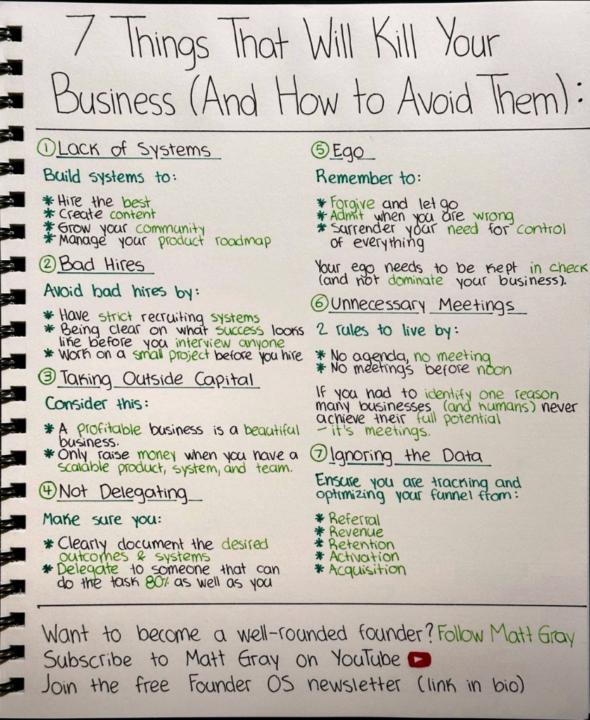 7 Things That Will Kill Your
Business (And How to Avoid Them):
① Lack of Systems
Build systems to:
* Hire the best
* Create content
* Grow your community
* Manage your product roadmap
② Bad Hires
Avoid bad hires by:
* Have strict recruiting systems
* Being clear on what success looks
like before you interview anyone
* Work on a small project before you hire
③ Taking Outside Capital
Consider this:
* A profitable business is a beautiful
business.
* Only raise money when you have a
scalable product, system, and team.
④ Not Delegating
Make sure you:
* Clearly document the desired
outcomes & systems
* Delegate to someone that can
do the task 80% as well as you
⑤ Ego
Remember to:
* Forgive and let go
* Admit when you are wrong
* Surrender your need for control
of everything
Your ego needs to be kept in check
(and not dominate your business).
⑥ Unnecessary Meetings
2 rules to live by:
* No agenda, no meeting
* No meetings before noon
If you had to identify one reason
many businesses (and humans) never
achieve their full potential
- it's meetings.
⑦ Ignoring the Data
Ensure you are tracking and
optimizing your funnel from:
* Referral
* Revenue
* Retention
* Activation
* Acquisition
Want to become a well-rounded founder? Follow Matt Gray
Subscribe to Matt Gray on YouTube
Join the free Founder OS newsletter (link in bio)